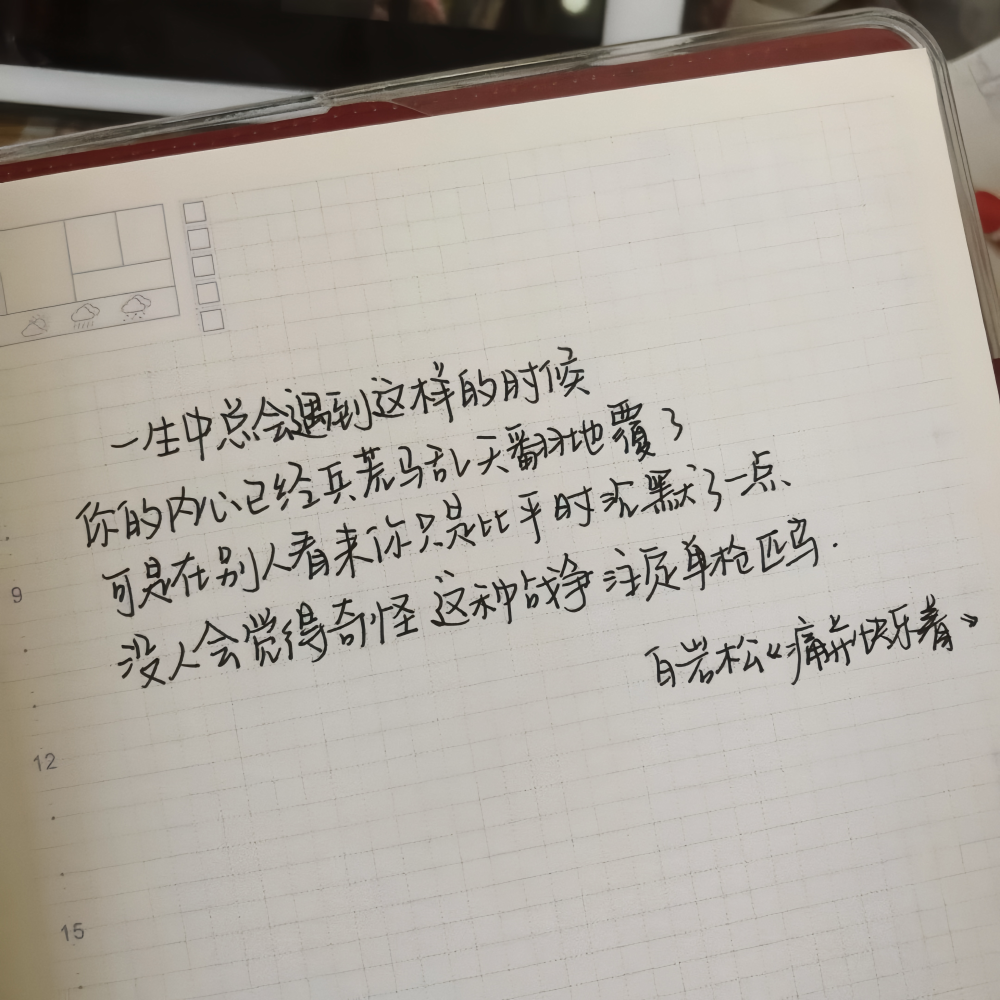 一生中总会遇到这样的时候
你的内心已经兵荒马乱天翻地覆了
可是在别人看来你只是比平时沉默了一点、
没人会觉得奇怪 这种战争 注定单枪匹马.
白岩松《痛并快乐着》
9
12
15